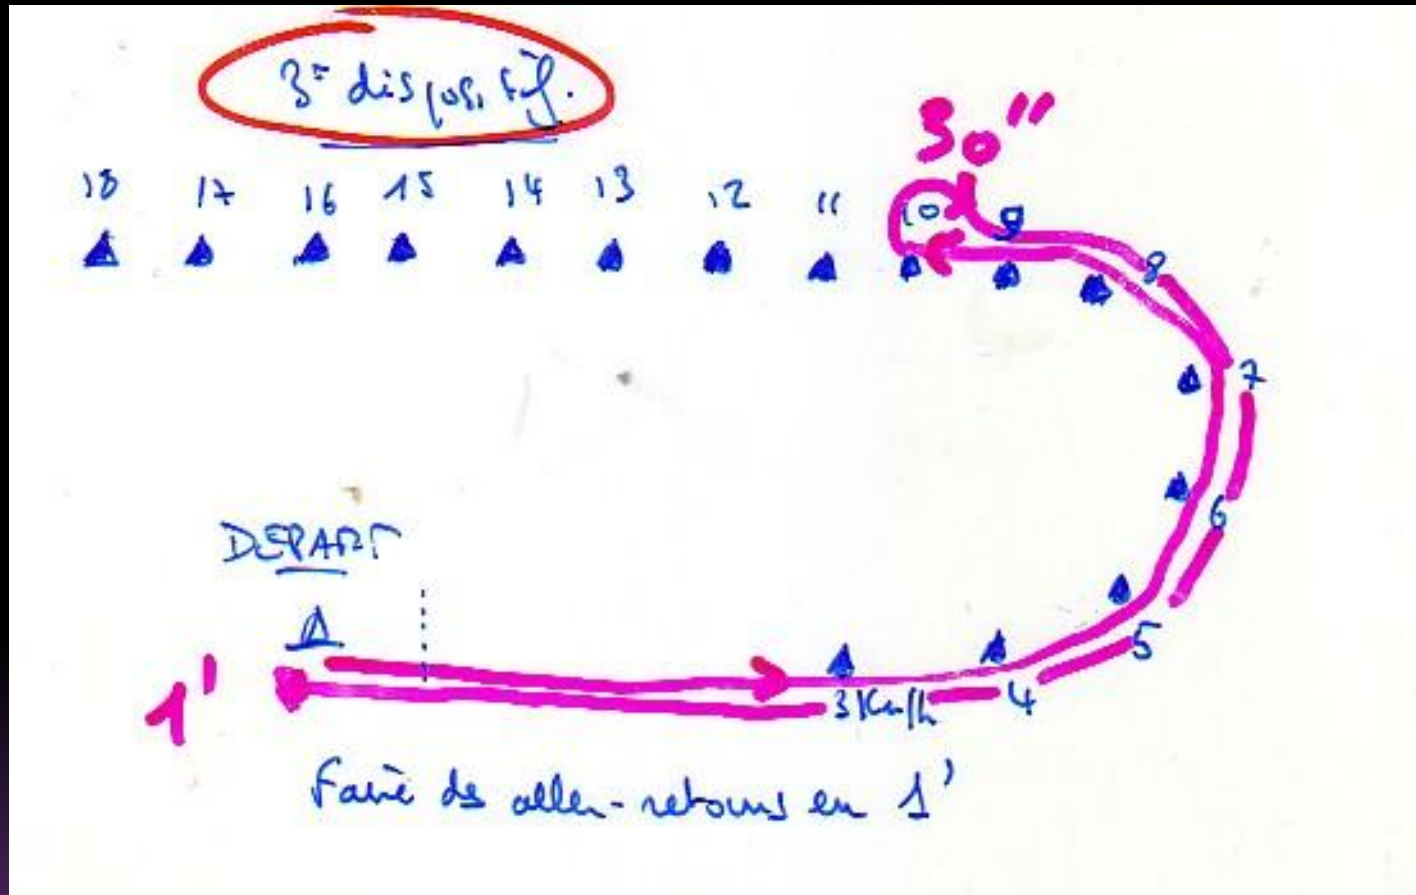 3e dispositif.
30"
18 17 16 15 14 13 12 11 10 9
8
7
6
DEPART
5
1' 3 Km/h 4
Faire des aller-retours en 1'